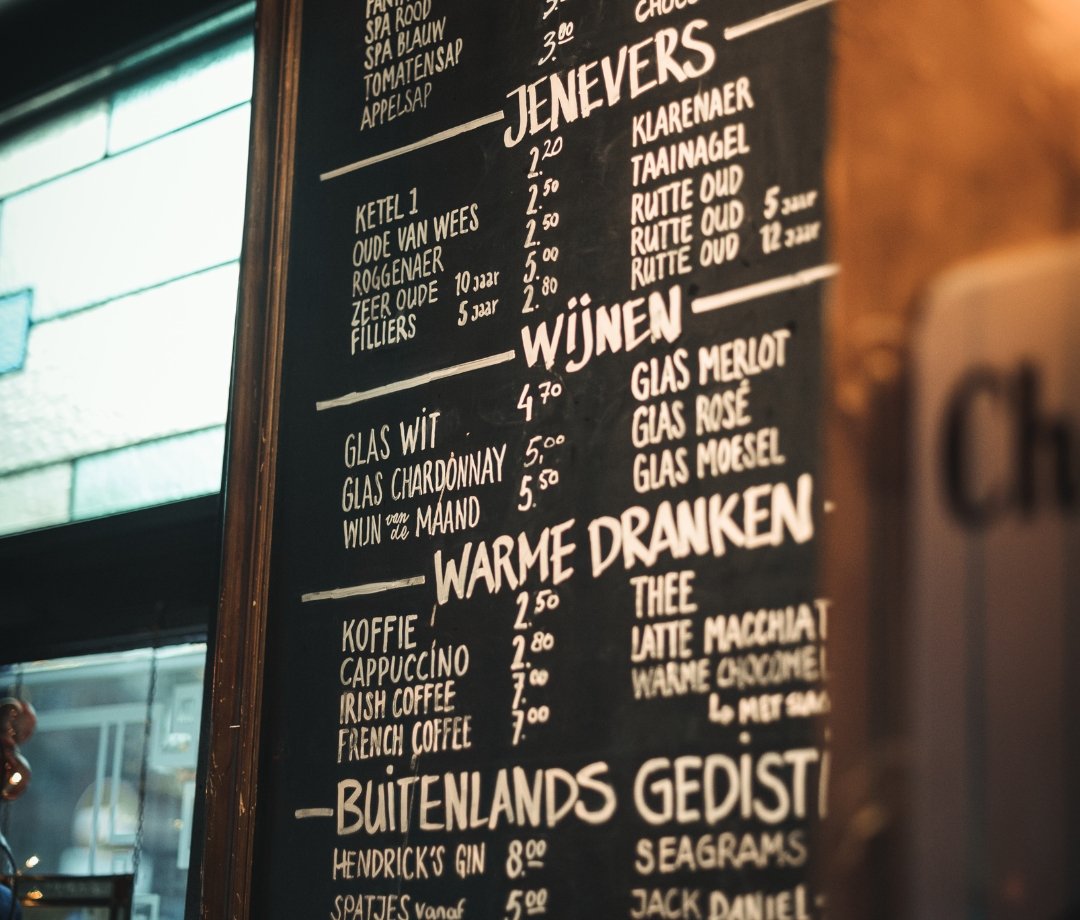 SPA ROOD
SPA BLAUW 3.80
TOMATENSAP
APPELSAP
JENEVERS
KETEL 1 2.20
OUDE VAN WEES 2.50
ROGGENAER 2.50
ZEER OUDE 10 jaar 5.00
FILLIERS 5 jaar 2.80
KLARENAER
TAAINAGEL
RUTTE OUD
RUTTE OUD 5 jaar
RUTTE OUD 12 jaar
WIJNEN
GLAS WIT 4.70
GLAS CHARDONNAY 5.00
WIJN van de MAAND 5.50
GLAS MERLOT
GLAS ROSÉ
GLAS MOESEL
WARME DRANKEN
KOFFIE 2.50
CAPPUCCINO 2.80
IRISH COFFEE 7.00
FRENCH COFFEE 7.00
THEE
LATTE MACCHIAT
WARME CHOCOMEL
↳ MET
BUITENLANDS GEDIST
HENDRICK'S GIN 8.00
SPATJES vanaf 5.00
SEAGRAMS
JACK DANIEL
Ch